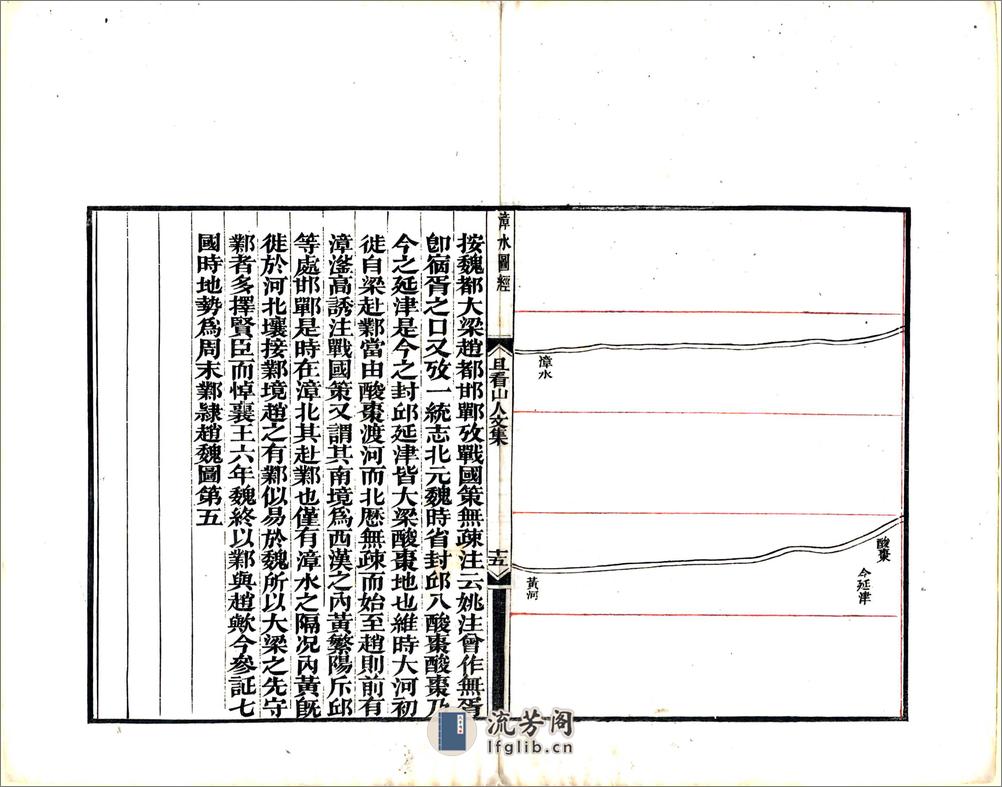 漳水
黃河
酸棗
今延津
漳水圖經
且看山人文集
十五
按魏都大梁趙都邯鄲攷戰國策無疎注云姚注曾作無胥
卽宿胥之口又攷一統志北元魏時省封邱入酸棗酸棗乃
今之延津是今之封邱延津皆大梁酸棗地也維時大河初
徙自梁赴鄴當由酸棗渡河而北歷無疎而始至趙則前有
漳滏高誘注戰國策又謂其南境爲西漢之內黃繁陽斥邱
等處邯鄲是時在漳北其赴鄴也僅有漳水之隔況內黃旣
徙於河北壤接鄴境趙之有鄴似易於魏所以大梁之先守
鄴者多擇賢臣而悼襄王六年魏終以鄴與趙歟今參証七
國時地勢爲周末鄴隸趙魏圖第五
流芳阁
lfglib.cn